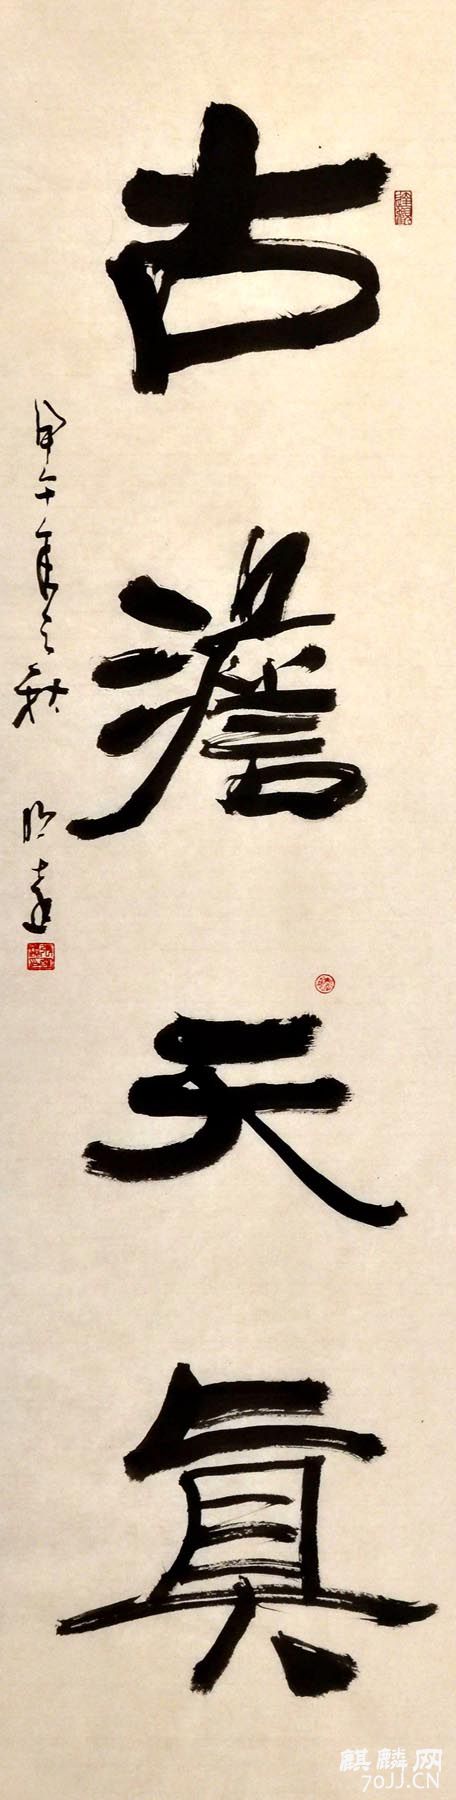 古澹天真
甲午年之秋
麒麟网
70JJ.CN